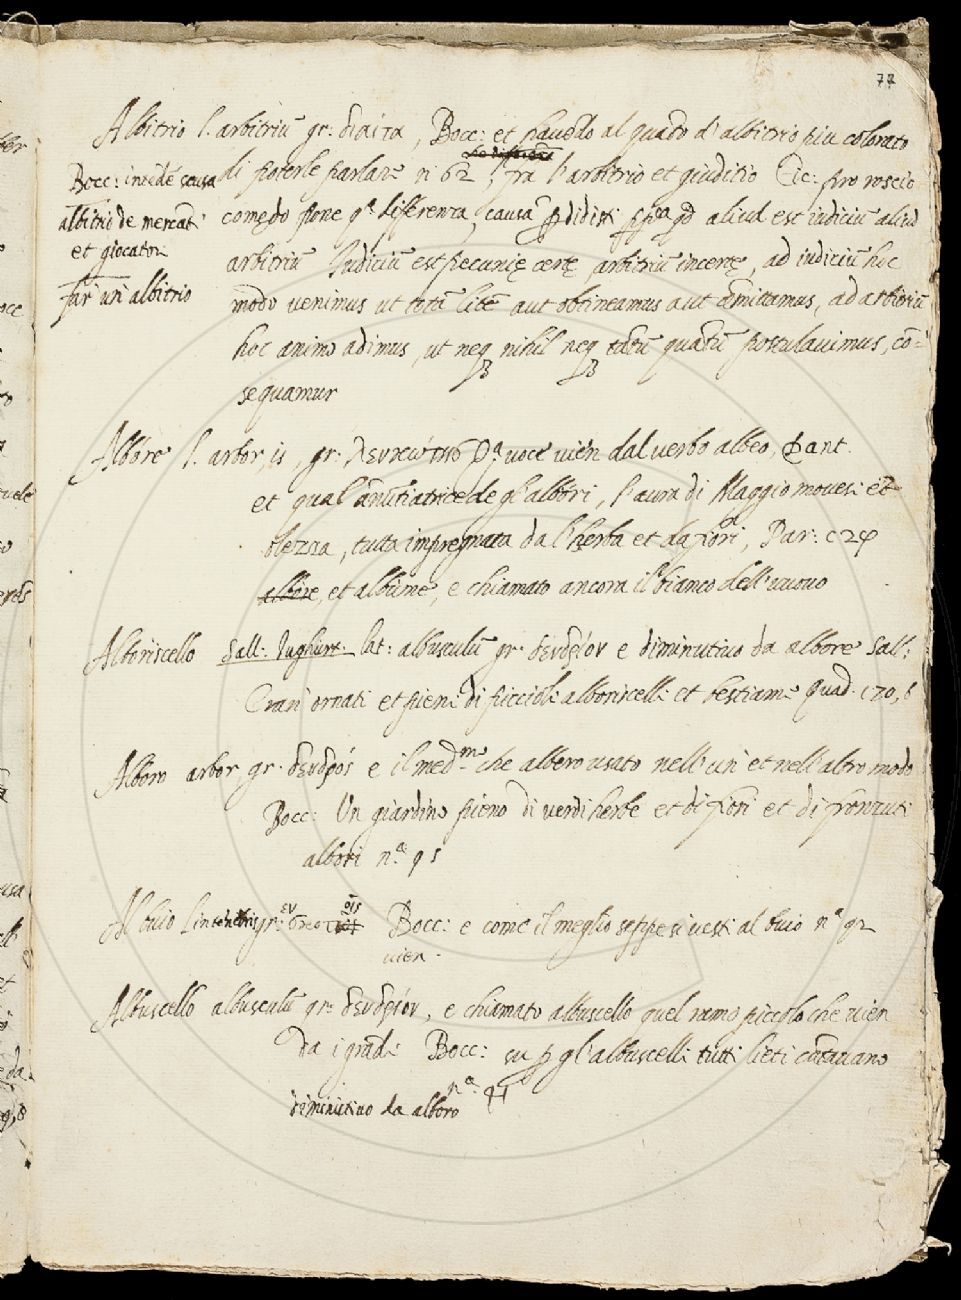 77
Albitrio l. arbitriũ gr: διαιτα, Bocc: et havẽdo al quãto d'albitrio piu colorato
di poterle parlare n 62, fra l'arbitrio et giuditio Cic: pro roscio
comẹdo pone qª diferenza, causã ꝑdidisti ꝓpª qđ aliud est iudiciũ aliud
arbitriũ Iudiciũ est pecunię certę arbitriũ incertę, ad iudiciũ hoc
modo venimus ut totã litẽ aut obtineamus aut amittamus, ad arbitriũ
hoc animo adimus, ut neqȝ nihil neqȝ tãtũ quãtũ postulavimus, cõ=
sequamur
Bocc: inẽdẽ scusa
albitrio de mercat:
et giocator.
far un albitrio
Albóre l. arbor, is, gr: qª voce viẽn dal verbo albeo, Dant.
et qual ãnũtiatrice de gl'albóri, l'aura di Maggio movesi et
olezza, tutta impregnata da l'herba et da fiori, Par: c 24
albóre, et albúme, e chiamato ancora il bianco dell'vuovo
Alboriscello Sall. Iughurt. lat: albusculũ gr. δενδρίον e diminutivo da albore Sall:
Eran' ornati et pieni di piccioli alboricelli et bestiame Quad. c 20, 6
Alboro arbor gr. δενδρός e il medmo che albero usato nell'un' et nell'altro modo
Bocc: Un giardino pieno di verdi herbe et di fiori et di fronzuti
albori nª 95
Al buio l. in tenebris gr: ἐν σκοτοις Bocc: e come il meglio seppe si vesti al buio nª 92
vien.
Albuscello albusculũ gr: δενδρίον, e chiamato albuscello quel ramo piccolo che vien
da i gradi Bocc: su ꝑ gl'albuscelli tutti lieti cãtavano
diminutivo da alboro nª 41